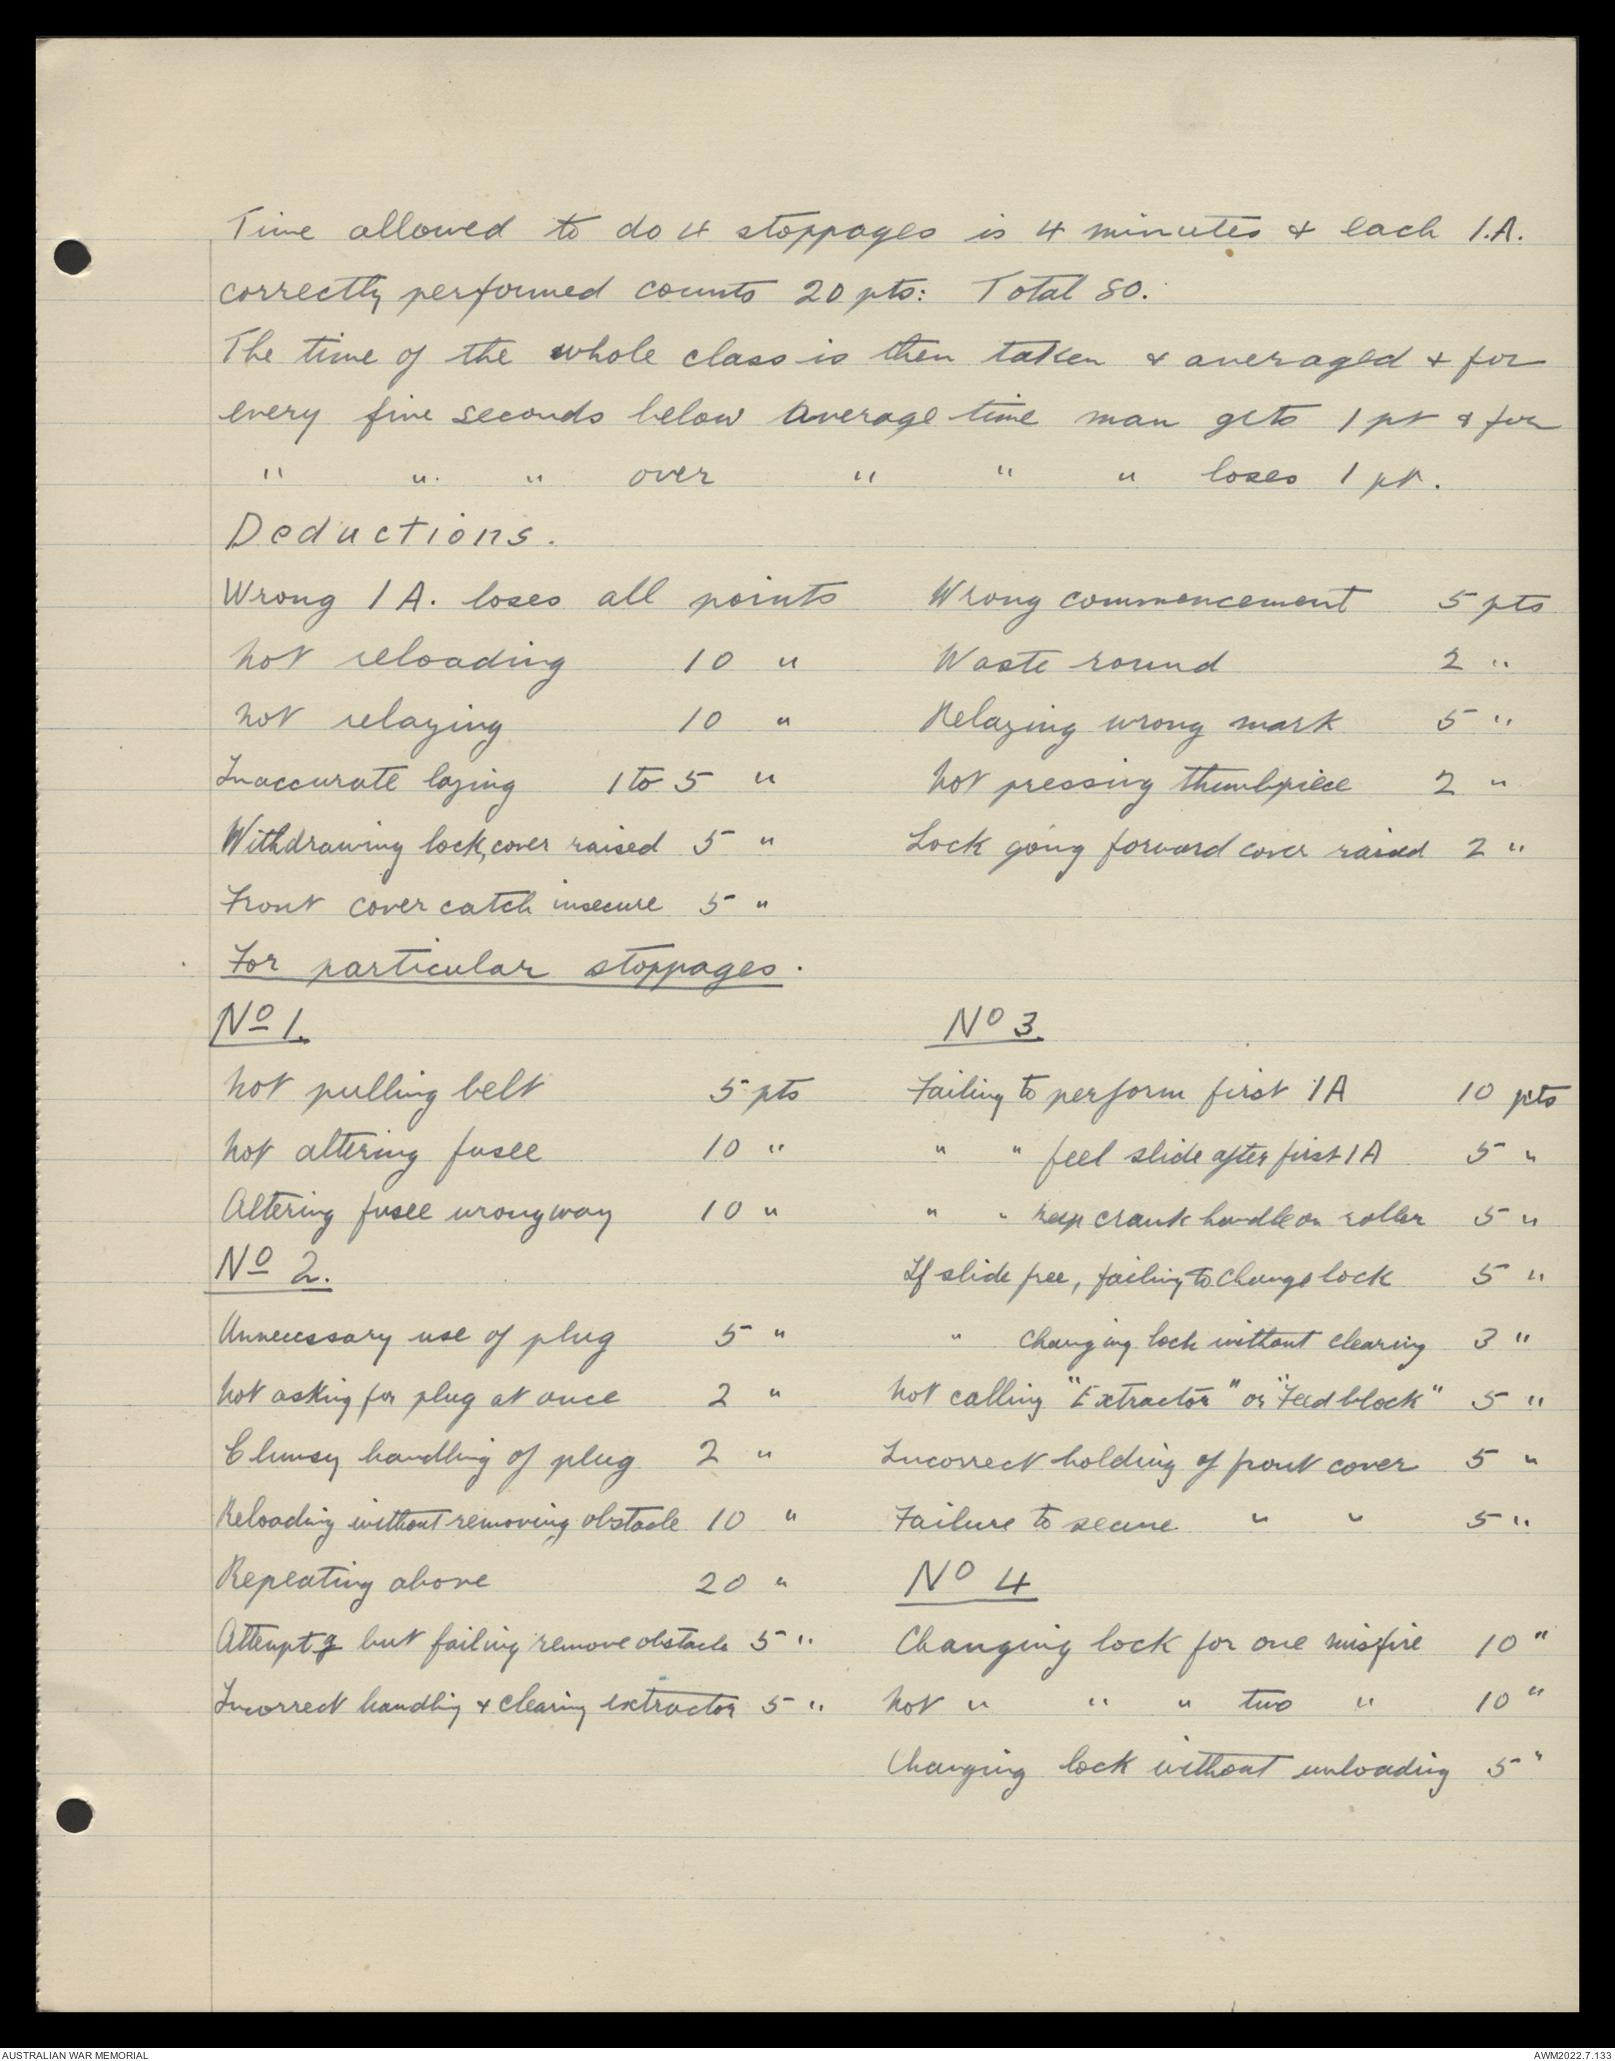 Time allowed to do 4 stoppages is 4 minutes & each I.A.
correctly performed counts 20 pts: Total 80.
The time of the whole class is then taken & averaged & for
every five seconds below average time man gets 1 pt & for
" " " over " " " loses 1 pt.
Deductions.
Wrong I A. loses all points Wrong commencement 5 pts
not reloading 10 " Waste round 2 "
not relaying 10 " Relaying wrong mark 5 "
Inaccurate laying 1 to 5 " not pressing thumbpiece 2 "
Withdrawing lock, cover raised 5 " Lock going forward cover raised 2 "
Front cover catch insecure 5 "
For particular stoppages.
No 1.
not pulling belt 5 pts
not altering fusee 10 "
Altering fusee wrong way 10 "
No 2.
Unnecessary use of plug 5 "
not asking for plug at once 2 "
Clumsy handling of plug 2 "
Reloading without removing obstacle 10 "
Repeating above 20 "
Attemptg but failing remove obstacle 5 "
Incorrect handling & clearing extractor 5 "
No 3.
Failing to perform first I A 10 pts
" " feel slide after first I A 5 "
" " keep crank handle on roller 5 "
If slide free, failing to change lock 5 "
" changing lock without clearing 3 "
not calling "Extractor" or "Feed block" 5 "
Incorrect holding of front cover 5 "
Failure to secure " " 5 "
No 4
Changing lock for one misfire 10 "
not " " " two " 10 "
Changing lock without unloading 5 "
AUSTRALIAN WAR MEMORIAL AWM2022.7.133